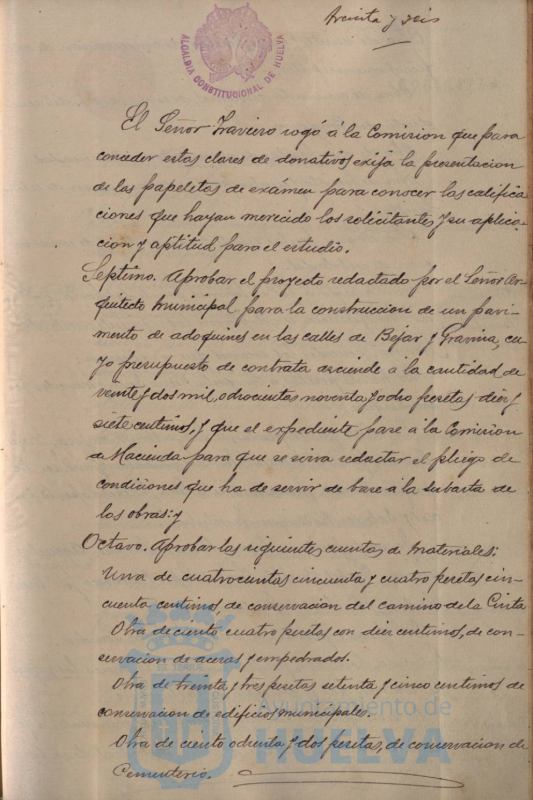 treinta y seis
ALCALDIA CONSTITUCIONAL DE HUELVA
El Señor Traviero rogó á la Comision que para
conceder estas clares de donativos exija la presentacion
de las papeletas de exámen para conocer las califica
ciones que hayan merecido los solicitantes y su aplica-
cion y aptitud para el estudio.
Septimo. Aprobar el proyecto redactado por el Señor Ar-
quitecto municipal para la construccion de un pavi-
mento de adoquines en las calles de Bejar y Gravina, cu-
yo presupuesto de contrata asciende a la cantidad de
veinte y dos mil, ochocientas noventa y ocho pesetas diez y
siete centimos, y que el expediente pase á la Comision
de Hacienda para que se sirva redactar el pliego de
condiciones que ha de servir de base á la subasta de
las obras: y
Octavo. Aprobar las siguientes cuentas de materiales:
Una de cuatrocientas cincuenta y cuatro pesetas cin-
cuenta centimos, de conservacion del camino de la Cinta
Otra de ciento cuatro pesetas con diez centimos, de con-
servacion de aceras y empedrados.
Otra de treinta y tres pesetas setenta y cinco centimos de
conservacion de edificios municipales.
Otra de ciento ochenta y dos pesetas, de conservacion de
Cementerio.
Ayuntamiento de
HUELVA